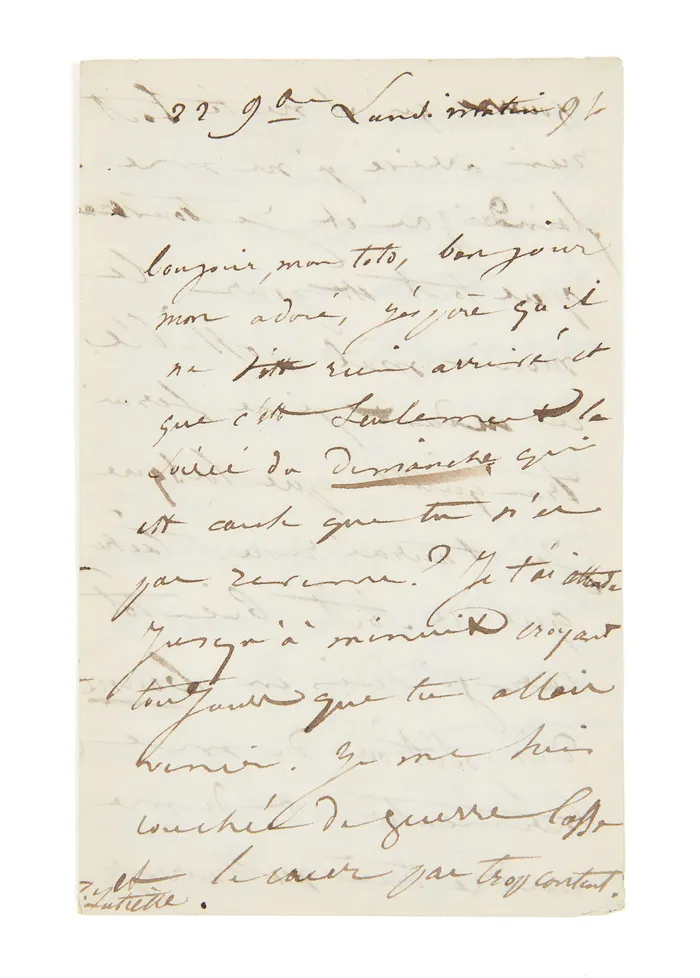 22 9bre Lundi matin 9h
bonjour, mon toto, bonjour
mon adoré, j'espère qu'il
ne t'est rien arrivé et
que c'est seulement la
soirée du dimanche qui
est cause que tu n'es
pas revenu? Je t'ai attendu
jusqu'à minuit croyant
toujours que tu allais
venir. Je me suis
couchée de guerre lasse
et le cœur pas trop content.
Juliette.